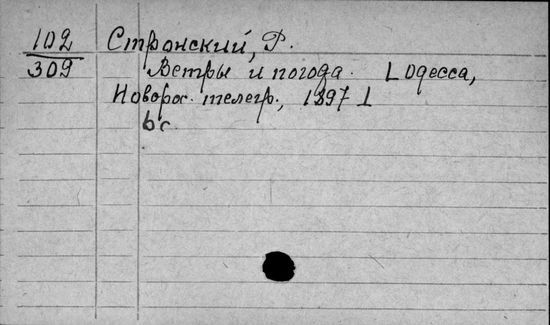 102 Стронский, Р.
309 Ветры и погода. [Одесса,
Новорос. телегр., 1897]
6 с.